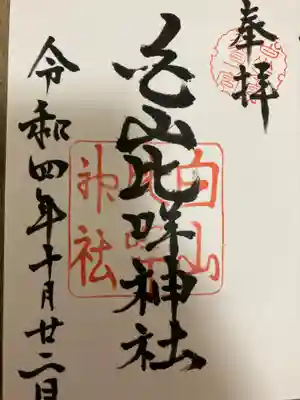 奉拝
白山比咩神社
令和四年十月廿二日
白山
神社